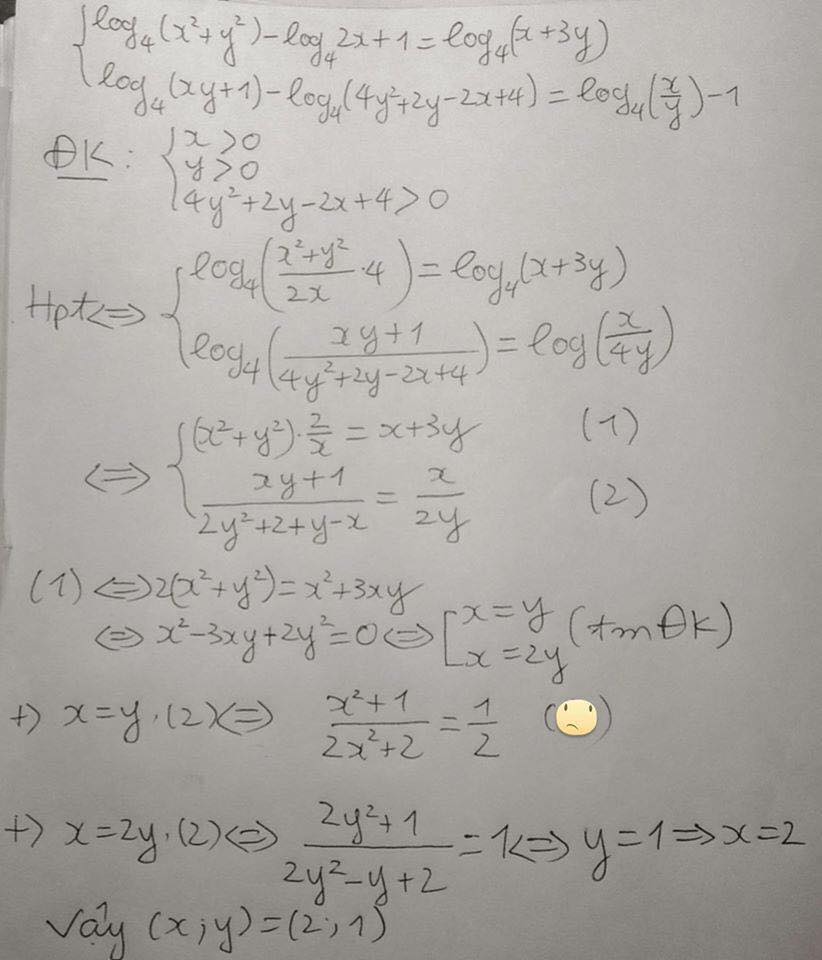 { log₄(x²+y²)-log₄2x+1=log₄(x+3y)
log₄(xy+1)-log₄(4y²+2y-2x+4)=log₄(x/y)-1
ĐK: { x>0
y>0
4y²+2y-2x+4>0
Hpt⇔ { log₄((x²+y²)/(2x)·4)=log₄(x+3y)
log₄((xy+1)/(4y²+2y-2x+4))=log(x/(4y))
⇔ { (x²+y²)·2/x=x+3y (1)
(xy+1)/(2y²+2+y-x)=x/(2y) (2)
(1)⇔2(x²+y²)=x²+3xy
⇔x²-3xy+2y²=0⇔[ x=y
x=2y (tmĐK)
+) x=y.(2)⇔ (x²+1)/(2x²+2)=1/2 (🙁)
+) x=2y.(2)⇔ (2y²+1)/(2y²-y+2)=1⇔y=1⇒x=2
Vậy (x;y)=(2;1)